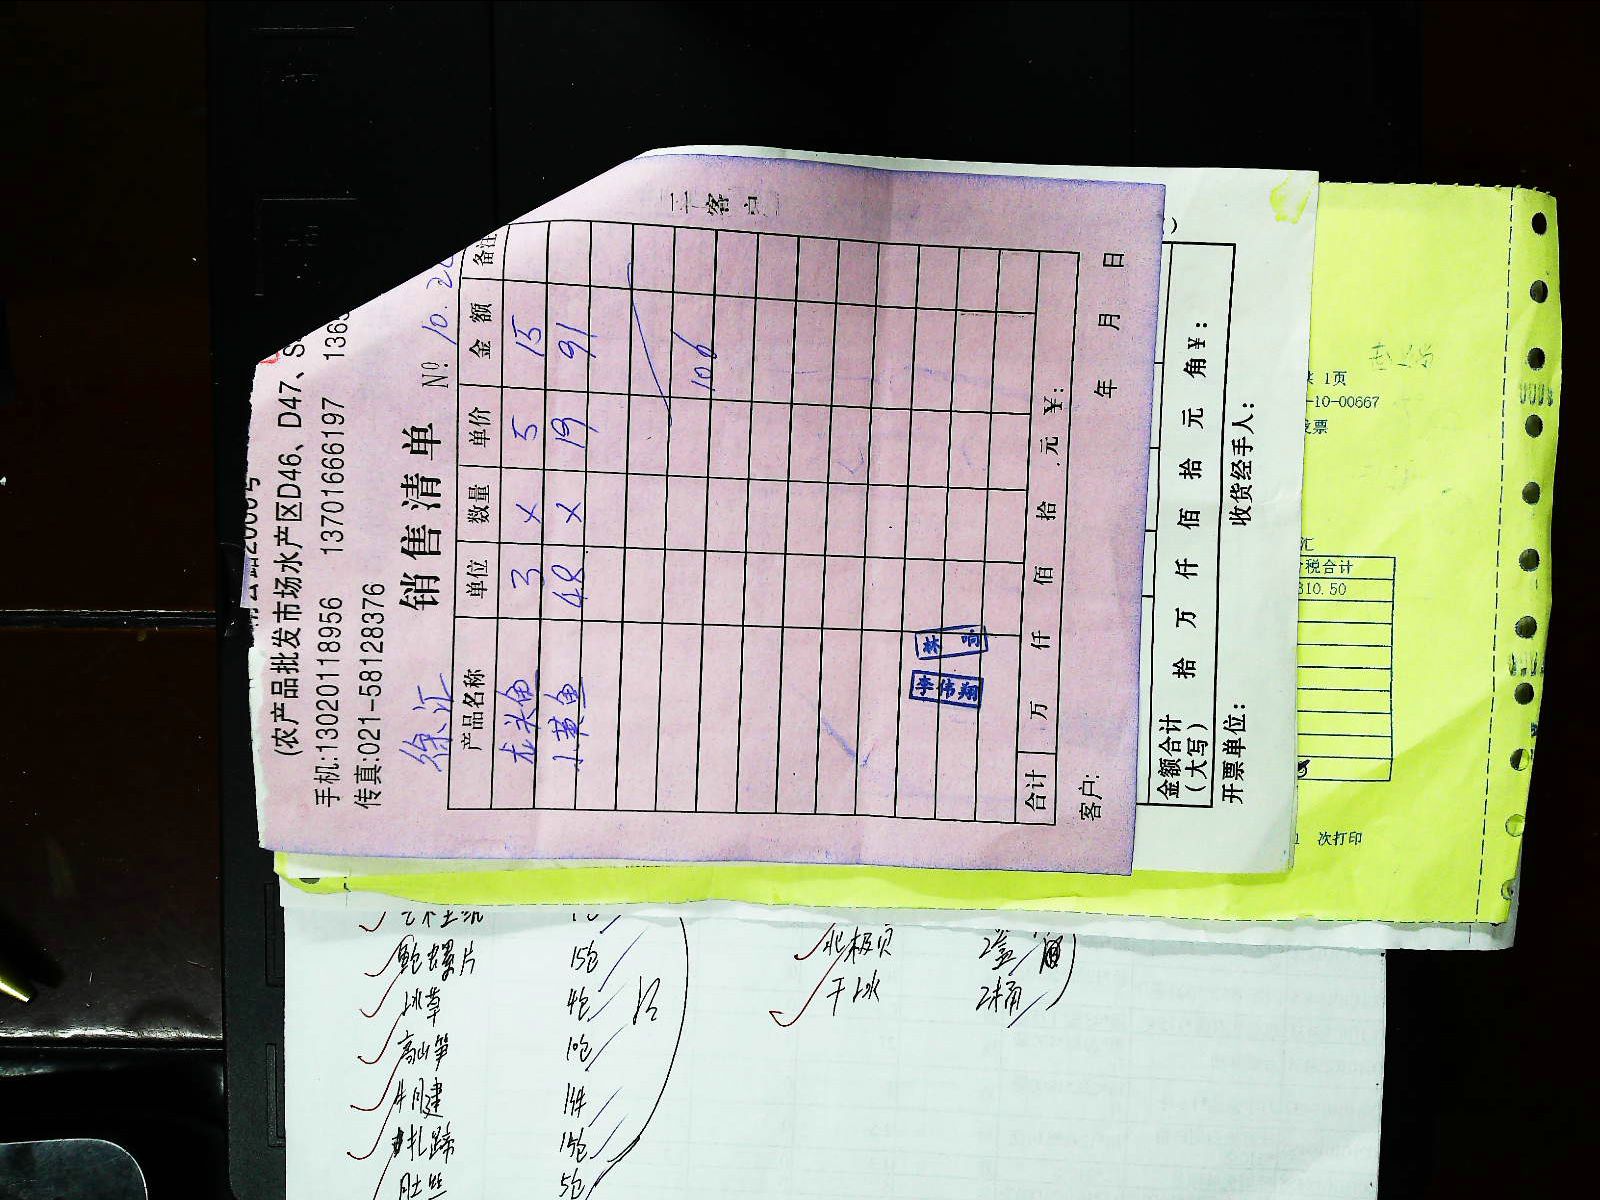 (农产品批发市场水产区D46、D47、S
手机:13020118956 13701666197 1363
传真:021-58128376
销售清单 № 10.2
徐汇
产品名称 单位 数量 单价 金额 备注
龙头鱼 3 × 5 15
小黄鱼 48 × 19 91
106
李伟翔
合计 万 仟 佰 拾 元 ¥:
客户: 年 月 日
二客户
金额合计
(大写) 拾 万 仟 佰 拾 元 角 ¥:
开票单位: 收货经手人:
1页
-10-00667
发票
汇
税合计
310.50
次打印
鲍螺片 15包
冰草 4包
高山笋 10包
牛腱 1件
扎蹄 15包
肚丝 5包
北极贝 2盒
干冰 2桶